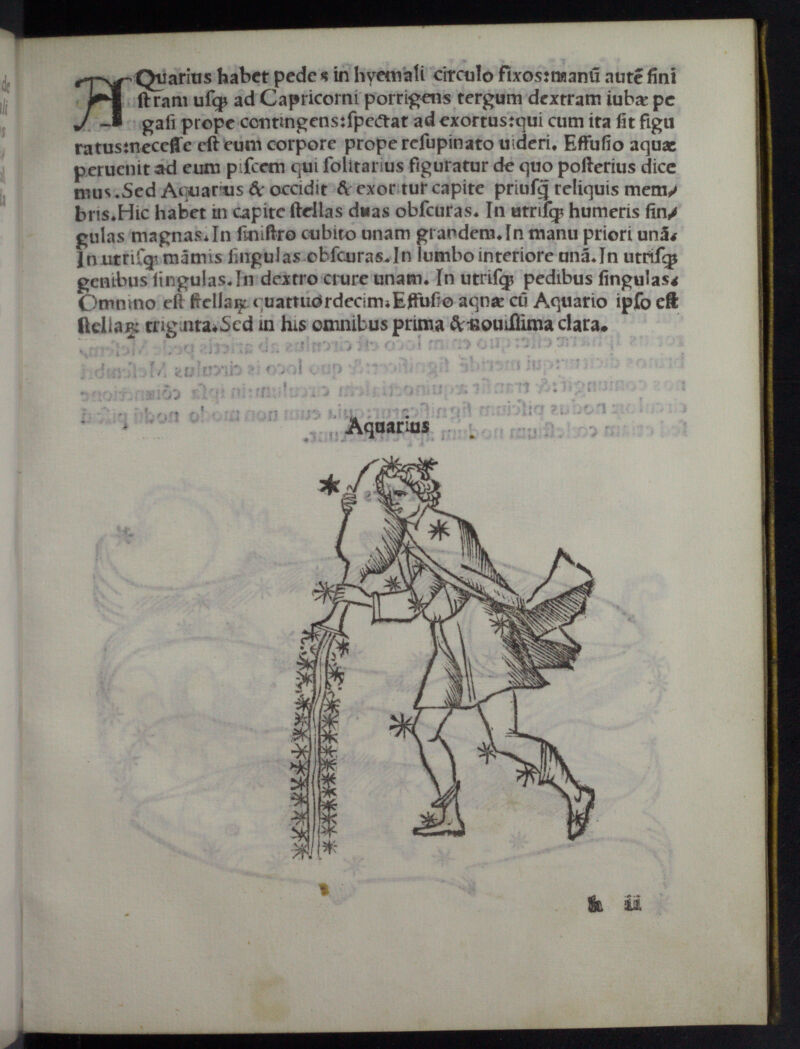 AQuarius habet pedes in hyemali circulo fixos:manū autē sini
stram usq; ad Capricorni porrigens tergum dextram iubæ pe
gasi prope contingens:spectat ad exortus:qui cum ita sit figu
ratus:necesse est eum corpore prope resupinato uideri. Effusio aquæ
peruenit ad eum piscem qui solitarius figuratur de quo posterius dice
mus.Sed Aquarius & occidit & exoritur capite priusq̄ reliquis mem/
bris.Hic habet in capite stellas duas obscuras. In utrisq; humeris sin/
gulas magnas.In sinistro cubito unam grandem.In manu priori unā.
In utrisq; māmis singulas obscuras.In lumbo interiore unā.In utrisq;
genibus singulas.In dextro crure unam. In utrisq; pedibus singulas.
Omnino est stellaꝝ quattuordecim.Effusio aqnæ cū Aquario ipso est
stellaꝝ triginta.Sed in his omnibus prima & nouissima clara.
Aquarius
h ii